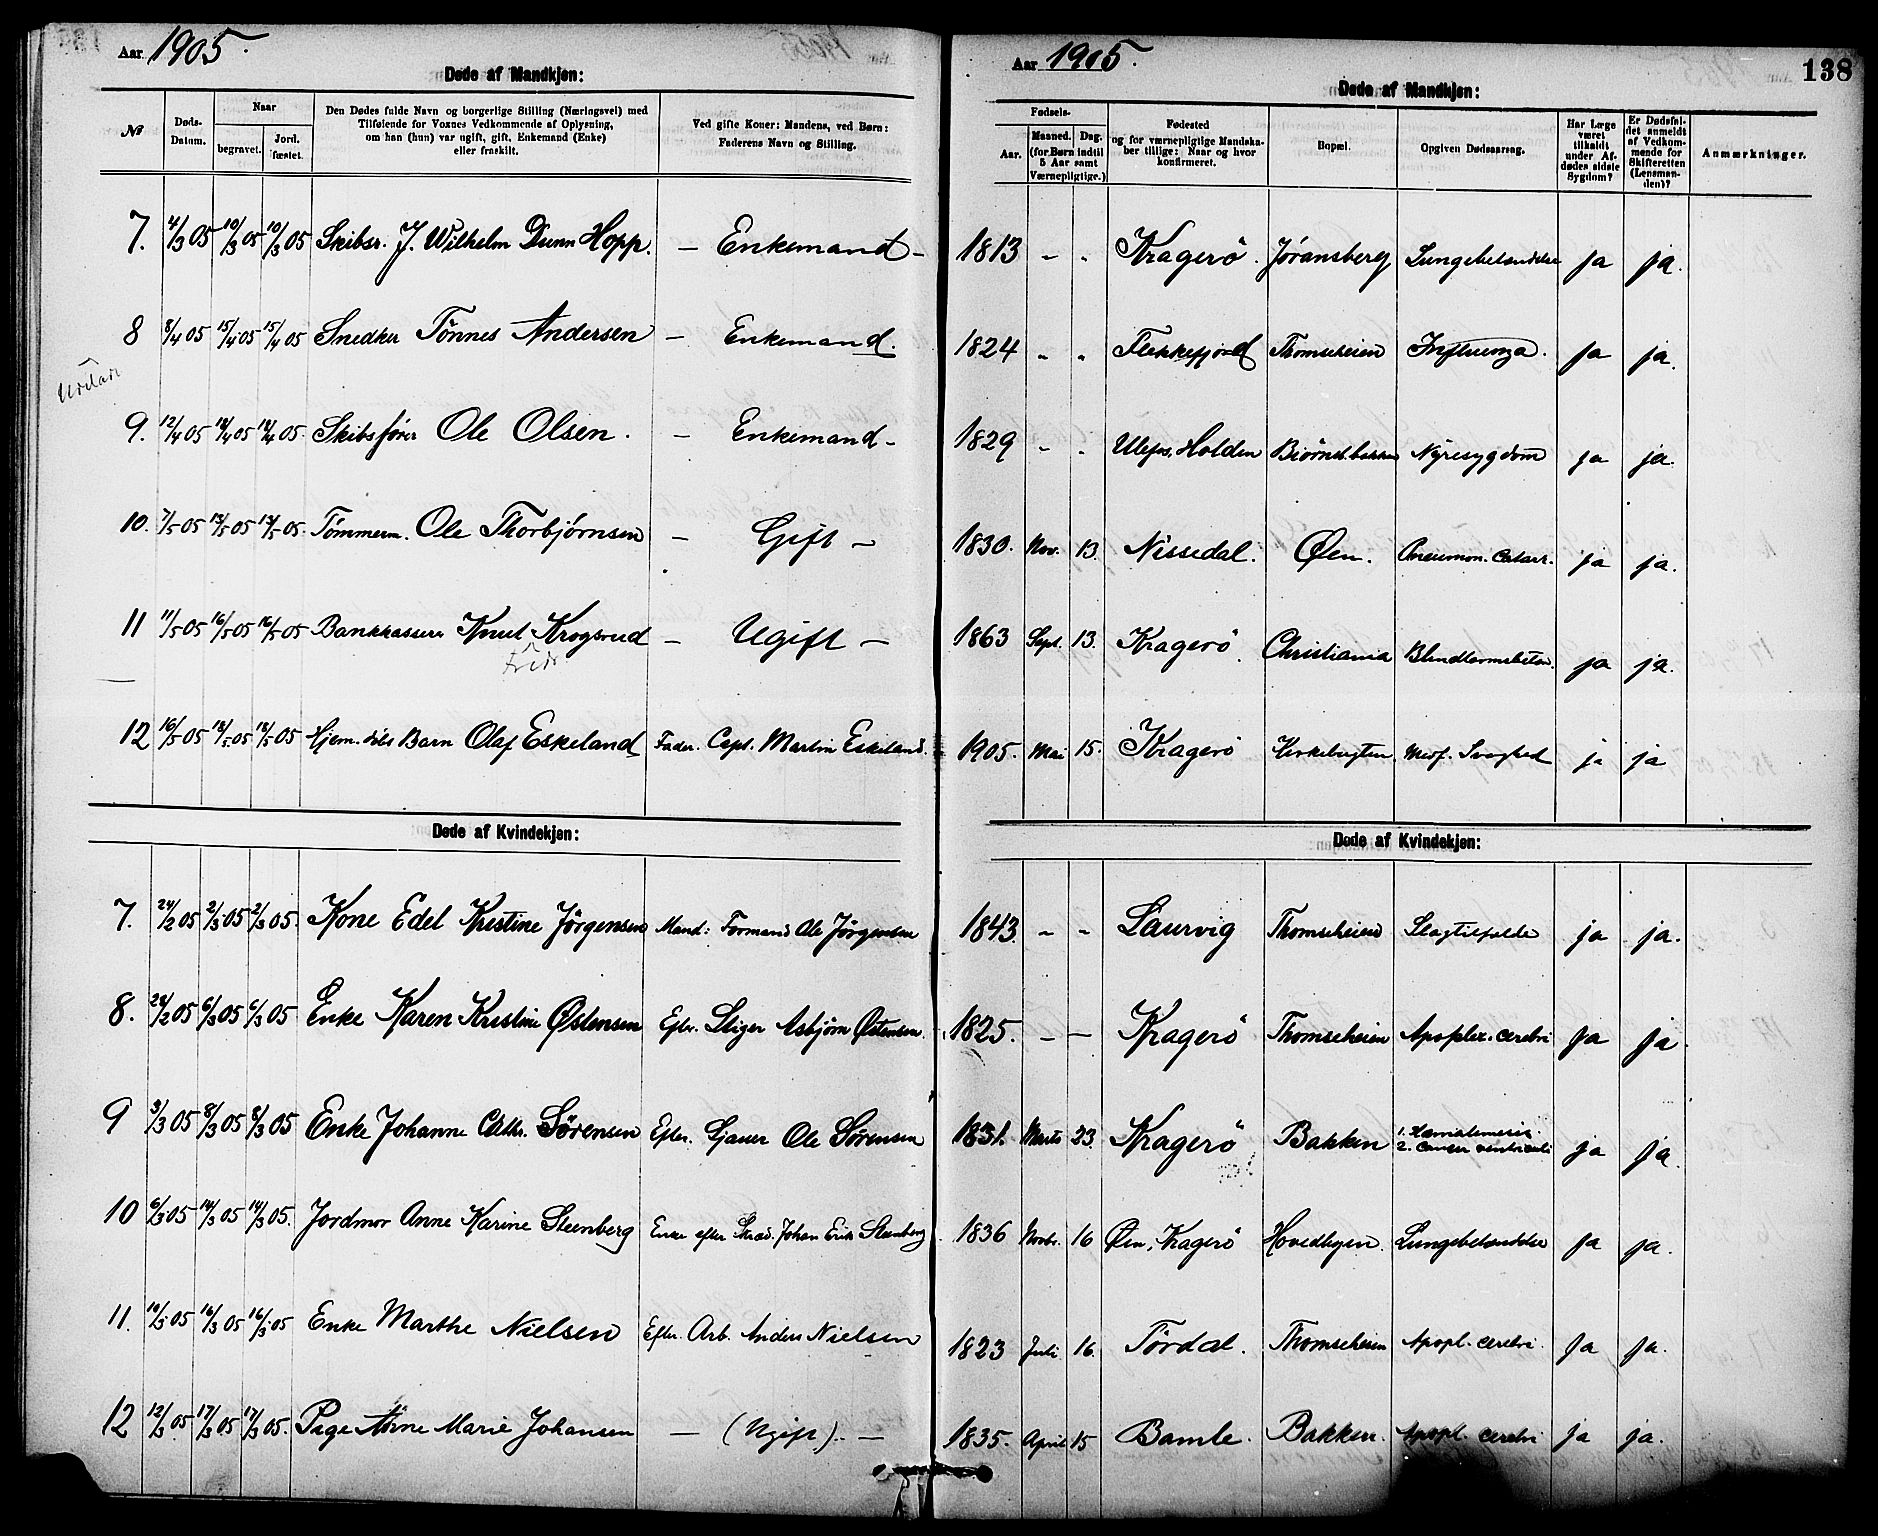 Aar 1905.
Døde af Mandkjøn:
№
Døds-Datum.
Naar
begravet.
Jord-fæstet.
Den Dødes fulde Navn og borgerlige Stilling (Næringsvei) med
Tilføiende for Voxnes Vedkommende af Oplysning,
om han (hun) var ugift, gift, Enkemand (Enke)
eller fraskilt.
Ved gifte Koner: Mandens, ved Børn:
Faderens Navn og Stilling.
7. 4/3 05 10/3 05 10/3 05 Skibsr. J. Wilhelm Dunn Hopp. — Enkemand —
8 8/4 05 15/4 05 15/4 05 Snedker Tönnes Andersen — Enkemand.
9. 12/4 05 18/4 05 18/4 05. Skibsfører Ole Olsen. — Enkemand —
10. 7/5 05 13/5 05 13/5 05. Tömmerm. Ole Thorbjørnsen — Gift —
11 11/5 05 16/5 05 16/5 05 Bankkasserer Knut Krogsrud — Ugift —
12 16/5 05 18/5 05 18/5 05 Hjem. döbt Barn Olaf Eskeland Fader. Capt. Martin Eskeland.
Døde af Kvindekjøn:
7. 24/2 05 2/3 05 2/3 05. Kone Edel Kristine Jörgensen Mand: Formand Ole Jörgensen
8. 28/2 05 6/3 05 6/3 05 Enke Karen Kristine Østensen Efter. Sliger Asbjörn Østensen.
9 3/3 05 8/3 05 8/3 05 Enke Johanne Cathr. Sörensen Efter. Gjauer Ole Sörensen
10 6/3 05 14/3 05 14/3 05. Jordmor Anne Karine Steenberg Enke efter Skræd. Johan Erik Steenberg
11. 10/3 05 16/3 05 16/3 05 Enke Marthe Nielsen Efter. Arb. Anders Nielsen
12 12/3 05 17/3 05 17/3 05. Pige Anne Marie Johansen — (Ugift). —
Aar 1905.
138
Døde af Mandkjøn:
Fødsels-
Aar.
Maaned.
Dag.
(for Børn indtil
5 Aar samt
Værnepligtige.)
Fødested
og for værnepligtige Mandska-
ber tillige: Naar og hvor
konfirmeret.
Bopæl.
Opgiven Dødsaarsag.
Har Læge
været
tilkaldt
under Af-
dødes sidste
Sygdom?
Er Dødsfal-
det anmeldt
af Vedkom-
mende for
Skifteretten
(Lensman-
den)?
Anmærkninger.
1813 „ „ Kragerö. Jøransberg Lungebetændelse ja ja.
1824 „ „ Flekkefjord Thomseheien Influenza. ja ja.
1829 „ „ Ulefos, Holden Biörnsbakken Nyresygdom ja ja.
1830. Nov. 13. Nissedal. Øen. Pneumon. Catarr. ja ja.
1863 Sept. 13. Kragerö. Christiania Blindtarmsbetæn. ja ja.
1905. Mai 15. Kragerö Kirkebugten. Medf. Svaghed ja ja
Døde af Kvindekjøn:
1843. „ „ Laurvig Thomseheien Slagtilfælde ja ja.
1825. — — Kragerö Thomseheien Apoplex. cerebri ja ja.
1831. Marts 23. Kragerö Bakken 1. Hæmatemesis. 2. Cancer ventriculi ja ja.
1836 Novbr. 16 Øen, Kragerö Hovedbyen. Lungebetændelse ja ja.
1823 Juli 16. Tördal. Thomseheien Apopl. cerebri. ja ja.
1835. April 15 Bamle. Bakken. Apopl. cerebri ja ja.